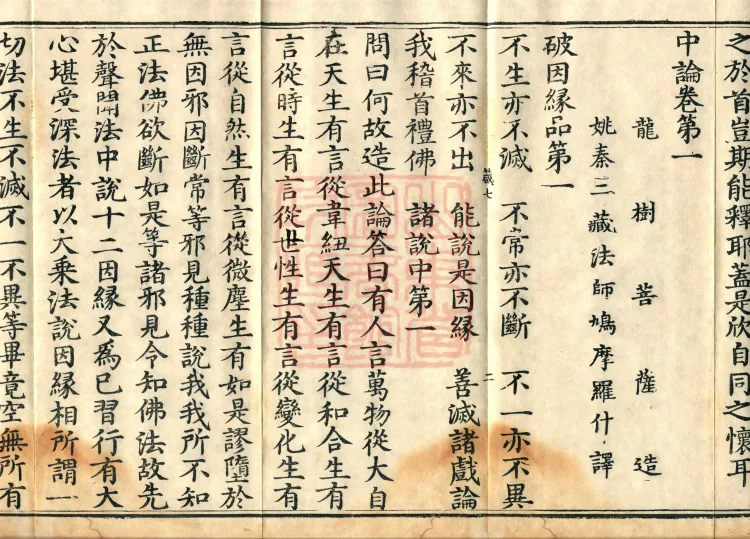 之於首豈期能釋耶蓋是欣自同之懷耳
中論卷第一
龍樹菩薩造
姚秦三藏法師鳩摩羅什譯
破因緣品第一
不生亦不滅 不常亦不斷 不一亦不異
不來亦不出 能說是因緣 善滅諸戲論
我稽首禮佛 諸說中第一
問曰何故造此論答曰有人言萬物從大自
在天生有言從韋紐天生有言從和合生有
言從時生有言從世性生有言從變化生有
言從自然生有言從微塵生有如是謬墮於
無因邪因斷常等邪見種種說我我所不知
正法佛欲斷如是等諸邪見令知佛法故先
於聲聞法中說十二因緣又為已習行有大
心堪受深法者以大乘法說因緣相所謂一
切法不生不滅不一不異等畢竟空無所有